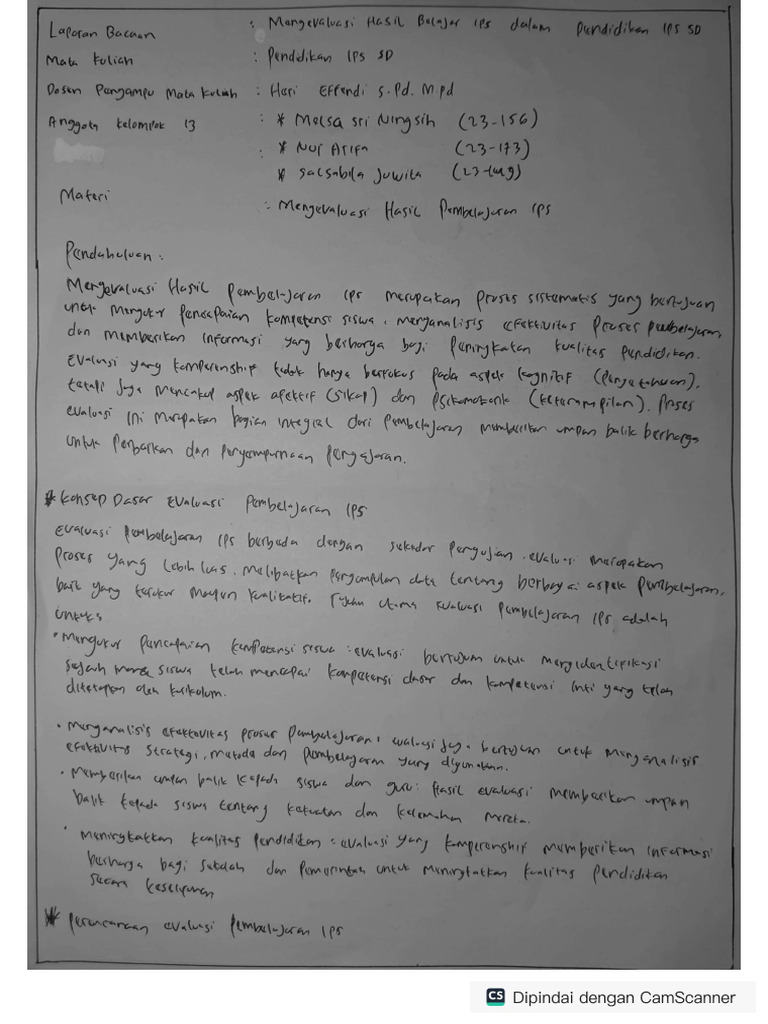 Laporan Bacaan : Mengevaluasi Hasil Belajar IPS dalam Pendidikan IPS SD
Mata Kuliah : Pendidikan IPS SD
Dosen Pengampu Mata Kuliah : Hari Effendi S.Pd. M.Pd
Anggota Kelompok 13 : * Melsa Sri Ningsih (23-156)
: * Nur Arifa (23-173)
* Salsabila Juwita
Materi : Mengevaluasi Hasil Pembelajaran IPS
Pendahuluan :
Mengevaluasi Hasil Pembelajaran IPS merupakan proses sistematis yang bertujuan
untuk mengukur pencapaian kompetensi siswa, menganalisis efektivitas proses pembelajaran,
dan memberikan informasi yang berharga bagi peningkatan kualitas pendidikan.
Evaluasi yang komperenship tidak hanya berfokus pada aspek kognitif (pengetahuan),
tetapi juga mencakup aspek afektif (sikap) dan psikomotorik (keterampilan). Proses
evaluasi ini merupakan bagian integral dari pembelajaran memberikan umpan balik berharga
untuk perbaikan dan penyempurnaan pengajaran.
* Konsep Dasar Evaluasi Pembelajaran IPS
Evaluasi Pembelajaran IPS berbeda dengan sekedar pengujian. evaluasi merupakan
proses yang lebih luas, melibatkan pengumpulan data tentang berbagai aspek pembelajaran,
baik yang terukur maupun kualitatif. Tujuan utama evaluasi pembelajaran IPS adalah
untuk:
• Mengukur pencapaian kompetensi siswa : evaluasi bertujuan untuk mengidentifikasi
sejauh mana siswa telah mencapai kompetensi dasar dan kompetensi inti yang telah
ditetapkan oleh kurikulum.
• Menganalisis efektivitas proses pembelajaran : evaluasi juga bertujuan untuk menganalisis
efektivitas strategi, metode dan pembelajaran yang digunakan.
• Memberikan umpan balik kepada siswa dan guru : Hasil evaluasi memberikan umpan
balik kepada siswa tentang kekuatan dan kelemahan mereka.
• Meningkatkan kualitas pendidikan : evaluasi yang komperenship memberikan informasi
berharga bagi sekolah dan pemerintah untuk meningkatkan kualitas pendidikan
secara keseluruhan
* Perencanaan evaluasi Pembelajaran IPS
CS Dipindai dengan CamScanner